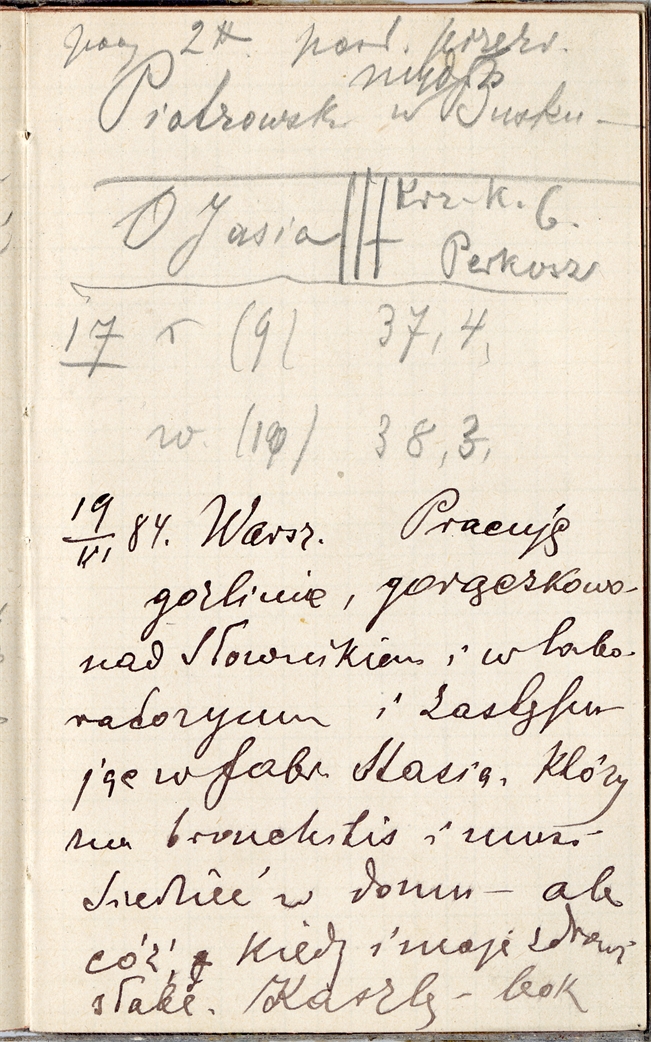 2 pod. przezr.
mydło
Piotrowsk w Busku —
O Jasia Krz. k. 6.
Perkosz
17 r (9) 37,4,
w. (10) 38,3,
19/III 84. Warsz. Pracuję
gorliwie, gorączkowo
nad Słownikiem i w labo-
ratoryum i zastępu
jąc w fabr. Stasia. Który
ma bronchitis i musi
siedzieć w domu — ale
cóż, kiedy i moje zdrowi
słabe. Kaszlę — bok